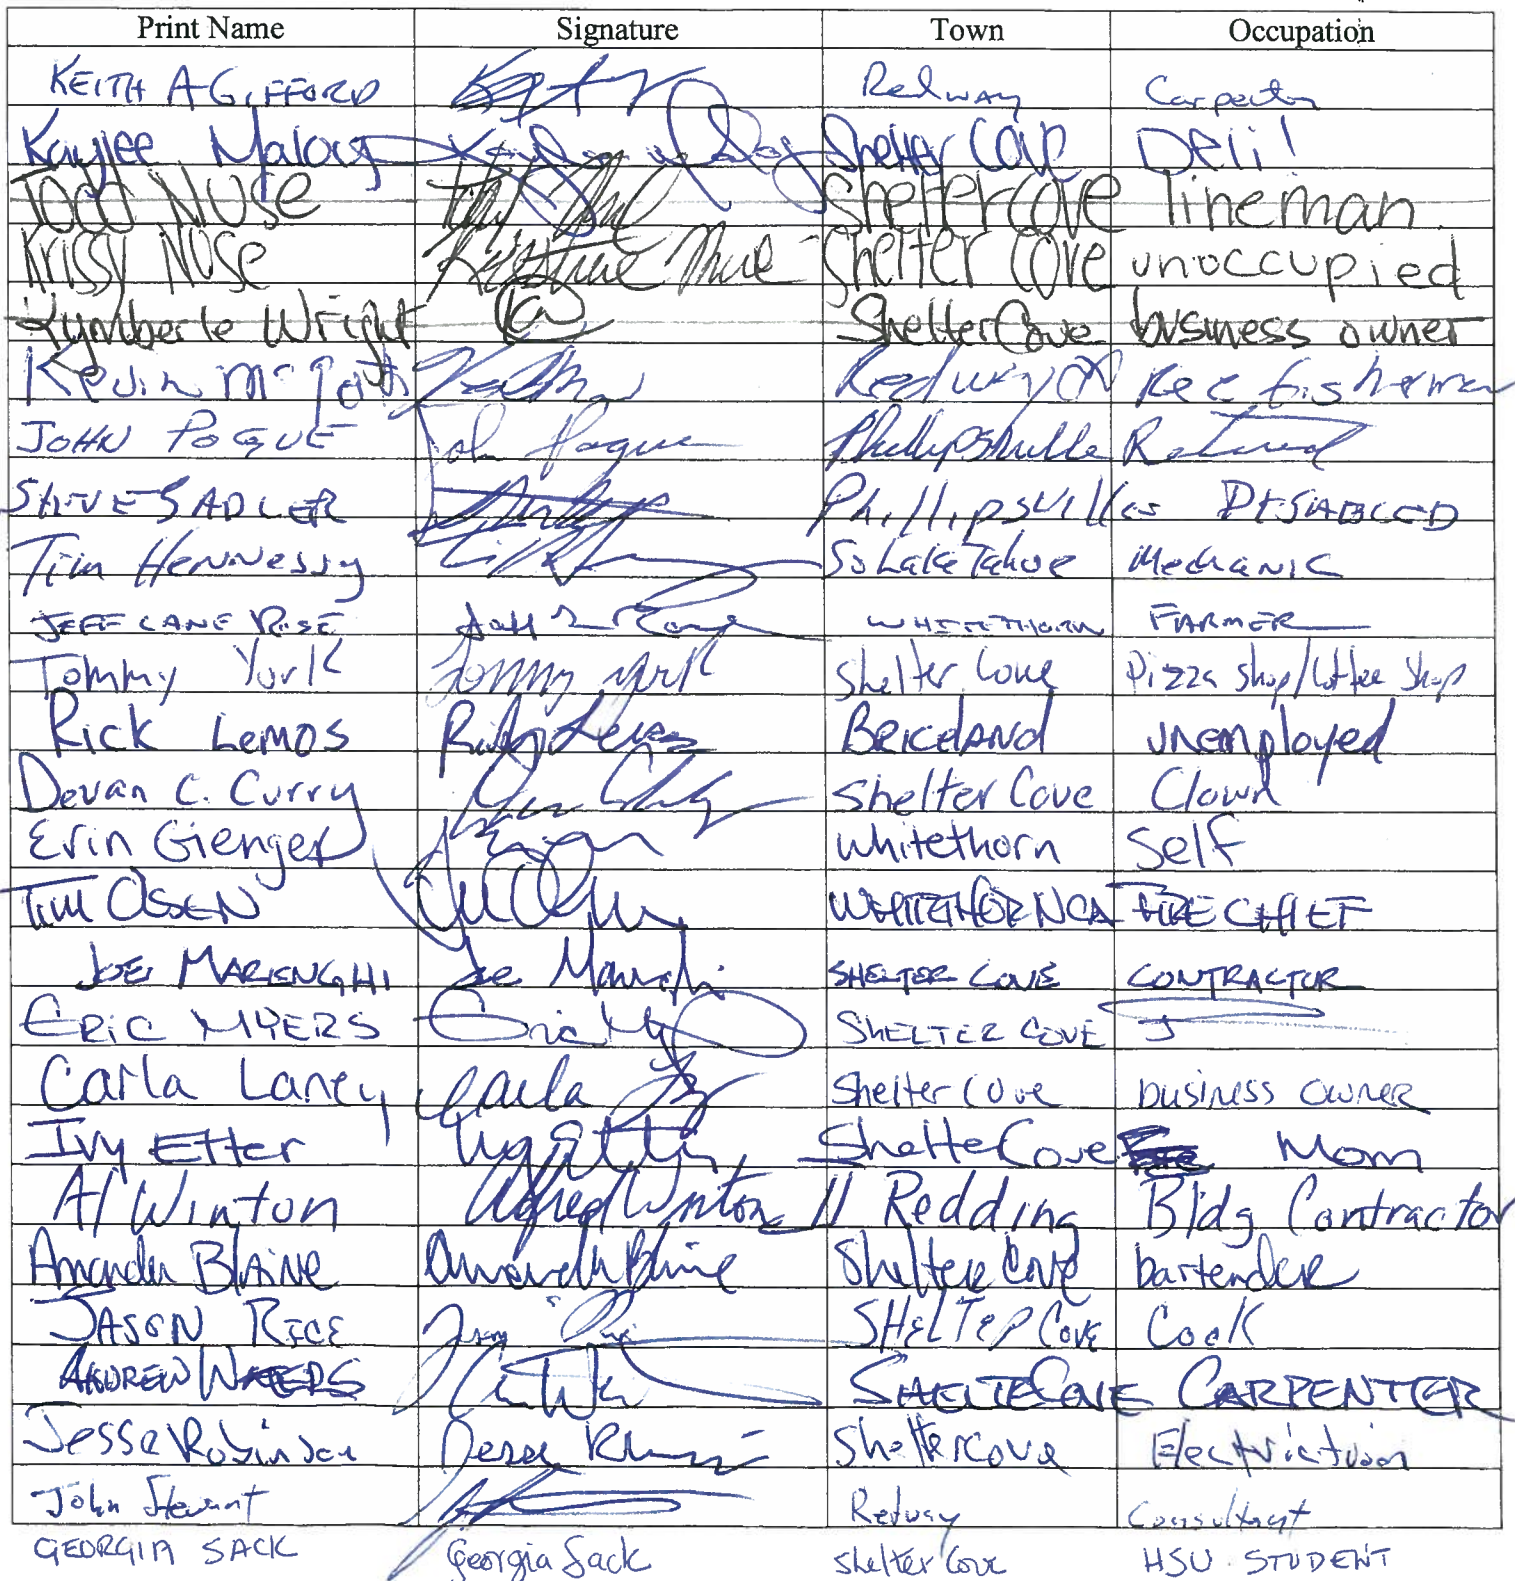 Print Name Signature Town Occupation
KEITH A GIFFORD Redway Carpenter
Kaylee Shelter Cove Deli!
Todd NUSe Sheltercove lineman
Krissy NUSe Shelter Cove unoccupied
Kymberle Wright Shelter Cove business owner
Kevin Redway Rec fisherman
JOHN POGUE John Pogue Phillipsville Retired
STEVE SADLER Phillipsville DISABLED
Tim Hennessy So Lake Tahoe Mechanic
JEFF LANE ROSE WHITETHORN FARMER
Tommy York Tommy York Shelter Cove Pizza Shop/Coffee Shop
Rick Lemos Briceland unemployed
Devan C. Curry Shelter Cove Clown
Erin Gienger Whitethorn Self
TIM OLSEN WHITETHORN CA FIRE CHIEF
JOE MARENGHI Joe SHELTER COVE CONTRACTOR
ERIC MYERS Eric SHELTER COVE
Carla Laney Carla Shelter Cove business owner
Ivy Etter Ivy Etter Shelter Cove Mom
Al Winton Alfred Winton II Redding Bldg Contractor
Amanda BlAiNe Amanda Blaine Shelter Cove bartender
JASON RICE SHELTER COVE Cook
ANDREW SHELTER COVE CARPENTER
Jesse Robinson Shelter Cove Electrictian
John Stewart Redway Consultant
GEORGIA SACK Georgia Sack Shelter Cove HSU STUDENT